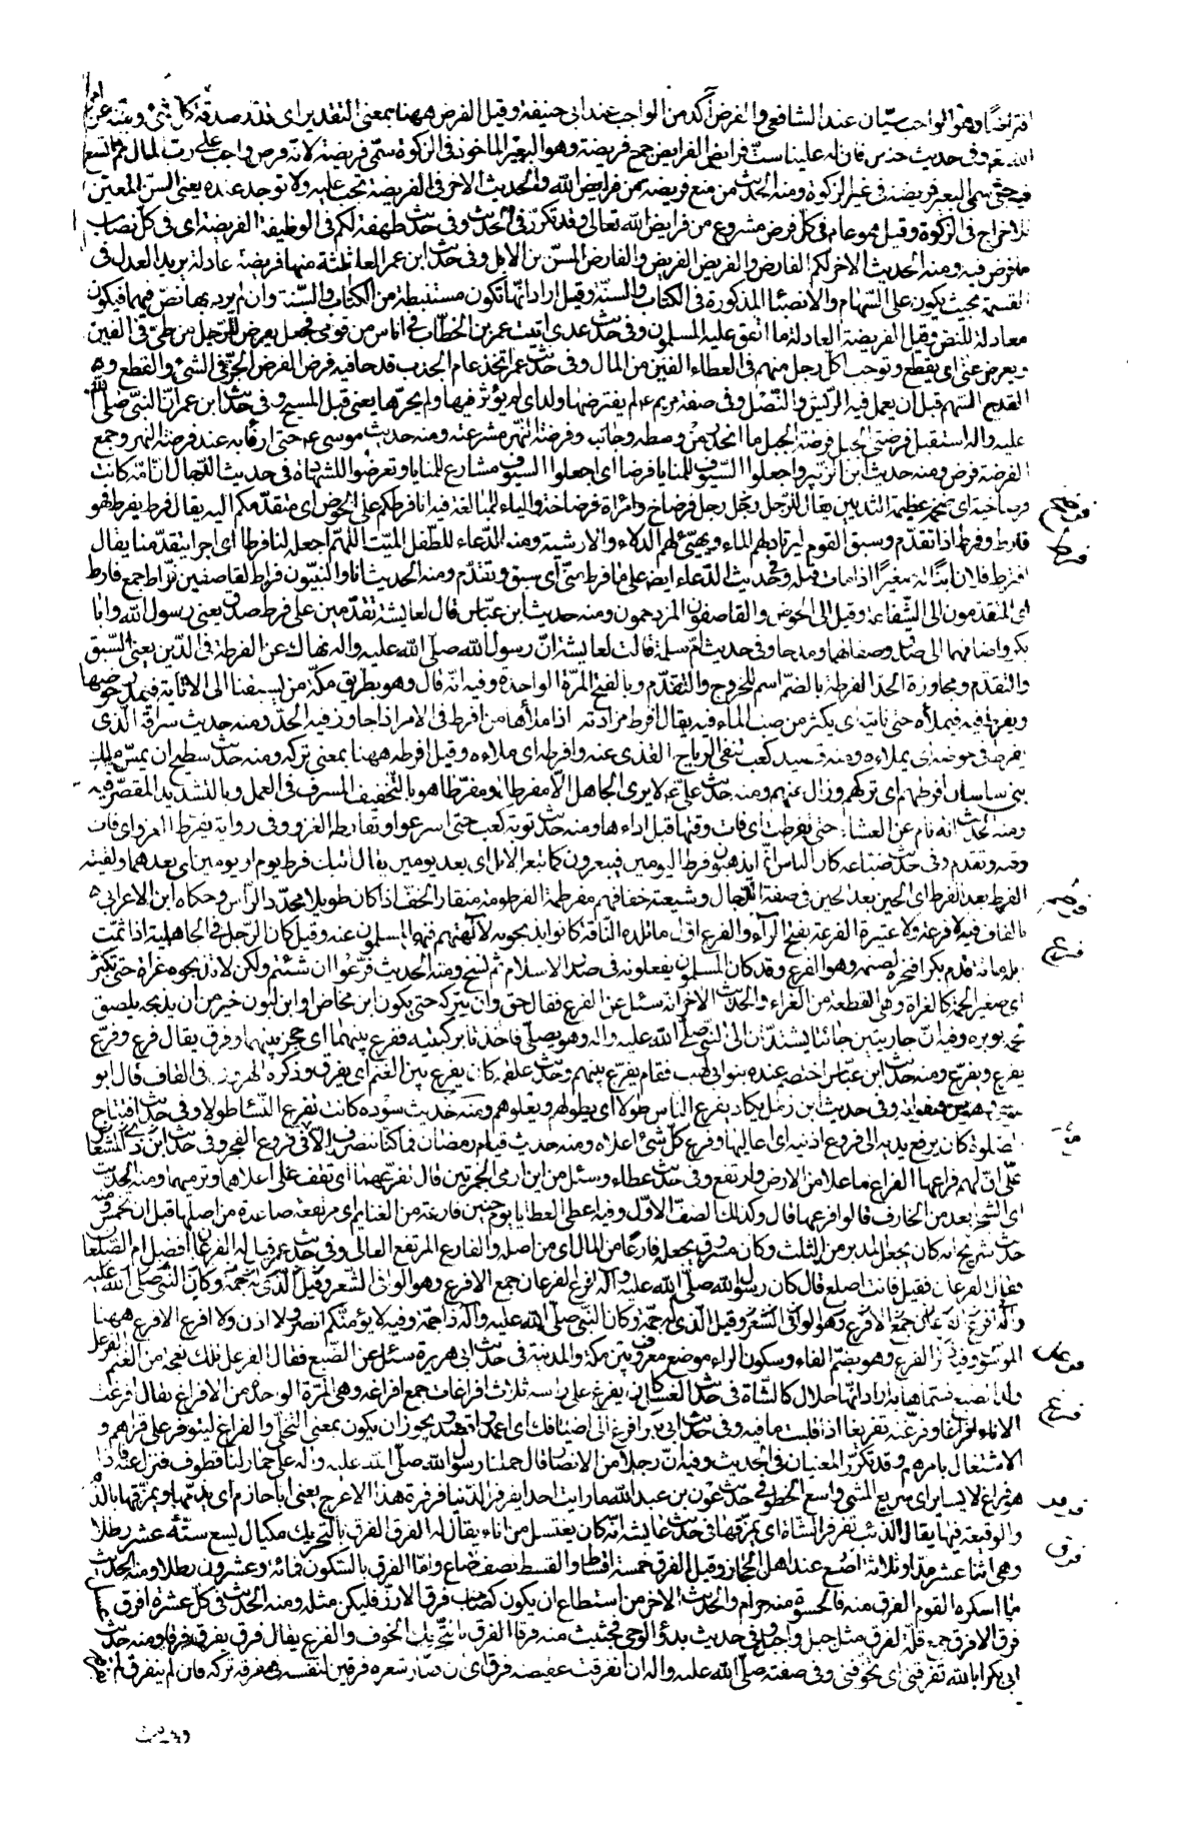 افتراضًا وهو والواجب سيّان عند الشافعي والفرض آكد من الواجب عند ابي حنيفة وقيل الفرض ههنا بمعنى التقدير اى قدّر صدقة كل شئ وبيّنه عن امر
الله تعالى وفى حديث حنين فان له علينا ستّ فرايض الفرايض جمع فريضة وهو البعير الماخوذ فى الزكوة سمّى فريضة لانه فرض واجب على ربّ المال ثم اتّسع
فيه حتى سمى البعير فريضة فى غير الزكوة ومنه الحديث من منع فريضة من فرايض الله والحديث الاخر فى الفريضة تجب عليه ولا توجد عنده يعنى السنّ المعيّن
للاخراج فى الزكوة وقيل هو عام فى كل فرض مشروع من فرايض الله تعالى وقد تكرّر فى الحديث وفى حديث طهفة لكم فى الوظيفة الفريضة اى فى كل نصاب
ما فرض فيه ومنه الحديث الاخر لكم الفارض والفريض الفريض والفارض المسنّ من الابل وفى حديث ابن عمر العلم ثلثة منها فريضة عادلة يريد العدل فى
القسمة بحيث يكون على السّهام والانصباء المذكورة فى الكتاب والسنّة وقيل اراد انّها تكون مستنبطة من الكتاب والسنّة وان لم يرد بها نصّ فيهما فيكون
معادلة للنص وقيل الفريضة العادلة ما اتفق عليه المسلمون وفى حديث عدى اتيت عمر بن الخطّاب فى اناس من قومى فجعل يفرض للرجل من طىّ فى الفين
ويعرض عنى اى يقطع ويوجب لكل رجل منهم فى العطاء الفين من المال وفى حديث عمر اتخذ عام الجدب قدحا فيه فرض الفرض الحزّ فى الشئ والقطع و
القدح السّهم قبل ان يعمل فيه الرّيش والنّصل وفى صفة مريم ع لم يفترضها ولد اى لم يؤثر فيها ولم يحزّها يعنى قبل المسيح وفى حديث ابن عمر انّ النبىّ صلى الله
عليه واله استقبل فرضتى الجبل فرضة الجبل ما انحدر من وسطه وجانبه وفرضة النهر مشرعته ومنه حديث موسى ع حتى ارفأ به عند فرضة النهر وجمع
الفرضة فرض ومنه حديث ابن الزبير واجعلوا السّيوف للمنايا فرضا اى اجعلوا السيوف مشارع للمنايا وتعرّضوا للشهادة فى حديث الدّجال انّ امّه كانت
فرضاخية اى ضخمة عظيمة الثديين يقال رجل فرضاخ وامرأة فرضاخة والياء للمبالغة فيه انا فرطكم على الحوض اى متقدّمكم اليه يقال فرط يفرط فهو
فارط وفرط اذا تقدّم وسبق القوم ليرتاد لهم الماء ويهيّئ لهم الدلاء والارشية ومنه الدّعاء للطفل الميّت اللّهم اجعله لنا فرطا اى اجرا يتقدّمنا يقال
افترط فلان ابنًا له صغيرًا اذا مات قبله وفى حديث الدّعاء ايضا على ما فرط منّى اى سبق وتقدّم ومنه الحديث انا والنبيّون فرّاط لقاصفين فرّاط جمع فارط
اى المتقدمون الى الشّفاعة وقيل الى الحوض والقاصفون المزدحمون ومنه حديث ابن عبّاس قال لعايشة تقدّمين على فرط صدق يعنى رسول الله وابا
بكر واضافهما الى صدق وصفا لهما ومدحا وفى حديث امّ سلمة قالت لعايشة انّ رسول الله صلّى الله عليه واله نهاك عن الفرطة فى الدّين يعنى السّبق
والتقدّم ومجاوزة الحدّ الفرطة بالضّم اسم للخروج والتقدّم وبالفتح المرّة الواحدة وفيه انّه قال وهو بطريق مكّة من يسبقنا الى الاثاية فيمدر حوضها
ويفرط فيه فيملأه حتى نأتيه اى يكثر من صبّ الماء فيه يقال افرط مزادته اذا ملأها من افرط فى الامر اذا جاوز فيه الحدّ ومنه حديث سراقة الذى
يفرط فى حوضه اى يملاءه ومنه قصيد كعب تنفى الرياح القذى عنه وافرطه اى ملاءه وقيل افرطه ههنا بمعنى تركه ومنه حديث سطيح ان يمس ملك
بنى ساسان افرطهم اى تركهم وزال عنهم ومنه حديث علىّ ع لا يرى الجاهل الّا مفرطا او مفرّطا هو بالتخفيف المسرف فى العمل وبالتشديد المقصّر فيه
ومنه الحديث انه نام عن العشاء حتى تفرّطت اى فات وقتها قبل اداءها ومنه حديث توبة كعب حتى اسرعوا وتفارط الغزو وفى رواية تفرّط الغزو اى فات
وقته وتقدم وفى حديث ضباعة كان الناس انّما يذهبون فرط اليومين فيبعرون كما تبعر الابل اى بعد يومين يقال اتيتك فرط يوم او يومين اى بعدهما ولقيته
الفرط بعد الفرط اى الحين بعد الحين فى صفة الدّجال وشيعته خفافهم مفرطمة الفرطومة منقار الخفّ اذا كان طويلا محدّد الرّأس وحكاه ابن الاعرابى
بالقاف فيه لا فرعة ولا عتيرة الفرعة بفتح الرّاء والفرع اوّل ما تلده النّاقة كانوا يذبحونه لآلهتهم فنهى المسلمون عنه وقيل كان الرّجل فى الجاهلية اذا تمّت
ابله مائة قدم بكرا فنحره لصنمه وهو الفرع وقد كان المسلمون يفعلونه فى صدر الاسلام ثم نسخ ومنه الحديث فرّعوا ان شئتم ولكن لا تذبحوه غراة حتى تكبر
اى صغير الحمه كالغراة وهى القطعة من الغراء والحديث الاخر انه سئل عن الفرع فقال حقّ وان يتركه حتى يكون ابن مخاض او ابن لبون خير من ان يذبحه يلصق
لحمه بوبره وفيه انّ جاريتين جائتا يشتدّان الى النبىّ صلّى الله عليه واله وهو يصلّى فاخذتا بركبتيه ففرع بينهما اى حجز بينهما وفرق يقال فرع وفرّع
يفرع ويفرّع ومنه حديث ابن عبّاس اختصم عنده بنو ابى لهب فقام يفرّع بينهم وحديث علقمة كان يفرع بين الغنم اى يفرق وذكره الهروى فى القاف قال ابو
موسى وهو من هفواته وفى حديث ابن زمل يكاد يفرع الناس طولا اى يطولهم ويعلوهم ومنه حديث سودة كانت تفرع النّسآء طولا وفى حديث افتتاح
الصلوة كان يرفع يديه الى فروع اذنيه اى اعاليها وفرع كلّ شئ اعلاه ومنه حديث قيام رمضان فما كنا ننصرف الّا فى فروع الفجر وفى حديث ابن ذى المشعار
على انّ لهم فراعها الفراع ما علا من الارض وارتفع وفى حديث عطاء وسئل من اين ارمى الجمرتين قال تفرعهما اى تقف على اعلاهما وترميهما ومنه الحديث
اى الشجر ابعد من الخارف قالوا فرعها قال وكذلك الصفّ الاوّل وفيه اعطى العطايا يوم حنين فارعة من الغنايم اى مرتفعة صاعدة من اصلها قبل ان تخمّس ومنه
حديث شريح انه كان يجعل المدبر من الثلث وكان مسروق يجعله فارعًا من المال اى من اصله والفارع المرتفع العالى وفى حديث عمر قيل له الفرعان افضل ام الصّلعان
فقال الفرعان فقيل فانت اصلع قال كان رسول الله صلّى الله عليه واله افرع الفرعان جمع الافرع وهو الوافى الشّعر وقيل الّذى له جمّة وكان النّبىّ صلّى الله عليه
واله افرع الفرعان جمع الافرع وهو الوافى الشعر وقيل الذى له جمّة وكان النّبىّ صلّى الله عليه واله ذا جمّة وفيه لا يؤمّنّكم انصر ولا ازن ولا افرع الافرع ههنا
الموسوس وفيه ذكر الفرع وهو بضمّ الفاء وسكون الراء موضع معروف بين مكة والمدينة فى حديث ابى هريرة سئل عن الضّبع فقال الفرعل تلك نعجة من الغنم الفرعل
ولد الضبع فسمّاها به اراد انّها حلال كالشّاة فى حديث الغسل كان يفرغ على راسه ثلاث افراغات جمع افراغة وهى المرّة الواحدة من الافراغ يقال افرغت
الاناء افراغا وفرّغته تفريغا اذا قلبت ما فيه وفى حديث ابى بكر افرغ الى اضيافك اى اعمد واقصد ويجوز ان يكون بمعنى التخلّى والفراغ ليتوفر على قراهم و
الاشتغال بامرهم وقد تكرّر المعنيان فى الحديث وفيه انّ رجلا من الانصار قال حملنا رسول الله صلّى الله عليه واله على حمار لنا قطوف فنزل عنه فاذا
هو فراغ لا يساير اى سريع المشى واسع الخطو فى حديث عون بن عبد الله ما رايت احدا يفرفر الدّنيا فرفرة هذا الاعرج يعنى ابا حازم اى يذمّها ويمزّقها بالذمّ
والوقيعة فيها يقال الذئب يفرفر الشاة اى يمزّقها فى حديث عايشة انه كان يغتسل من اناء يقال له الفرق الفرق بالتحريك مكيال يسع ستّة عشر رطلا
وهى اثنا عشر مدّا وثلاثة اصع عند اهل الحجاز وقيل الفرق خمسة اقساط والقسط نصف صاع وامّا الفرق بالسّكون فمائة وعشرون رطلا ومنه الحديث
ما اسكر القوم الفرق منه فالحسوة منه حرام والحديث الاخر من استطاع ان يكون كصاحب فرق الارزّ فليكن مثله ومنه الحديث فى كل عشرة افرق
فرق الافرق جمع قلّة لفرق مثل جبل واجبل وفى حديث بدؤ الوحى فجئثت منه فرقا الفرق بالتحريك الخوف والفزع يقال فرق يفرق فرقا ومنه حديث
ابى بكر ابالله تفرّقنى اى تخوّفنى وفى صفته صلّى الله عليه واله ان انفرقت عقيصته فرق اى ان صار شعره فرقين لنفسه فى مفرقه تركه فان لم ينفرق لم
فرضخ
فرط
فرطم
فرع
فرعل
فرغ
فرفر
فرق